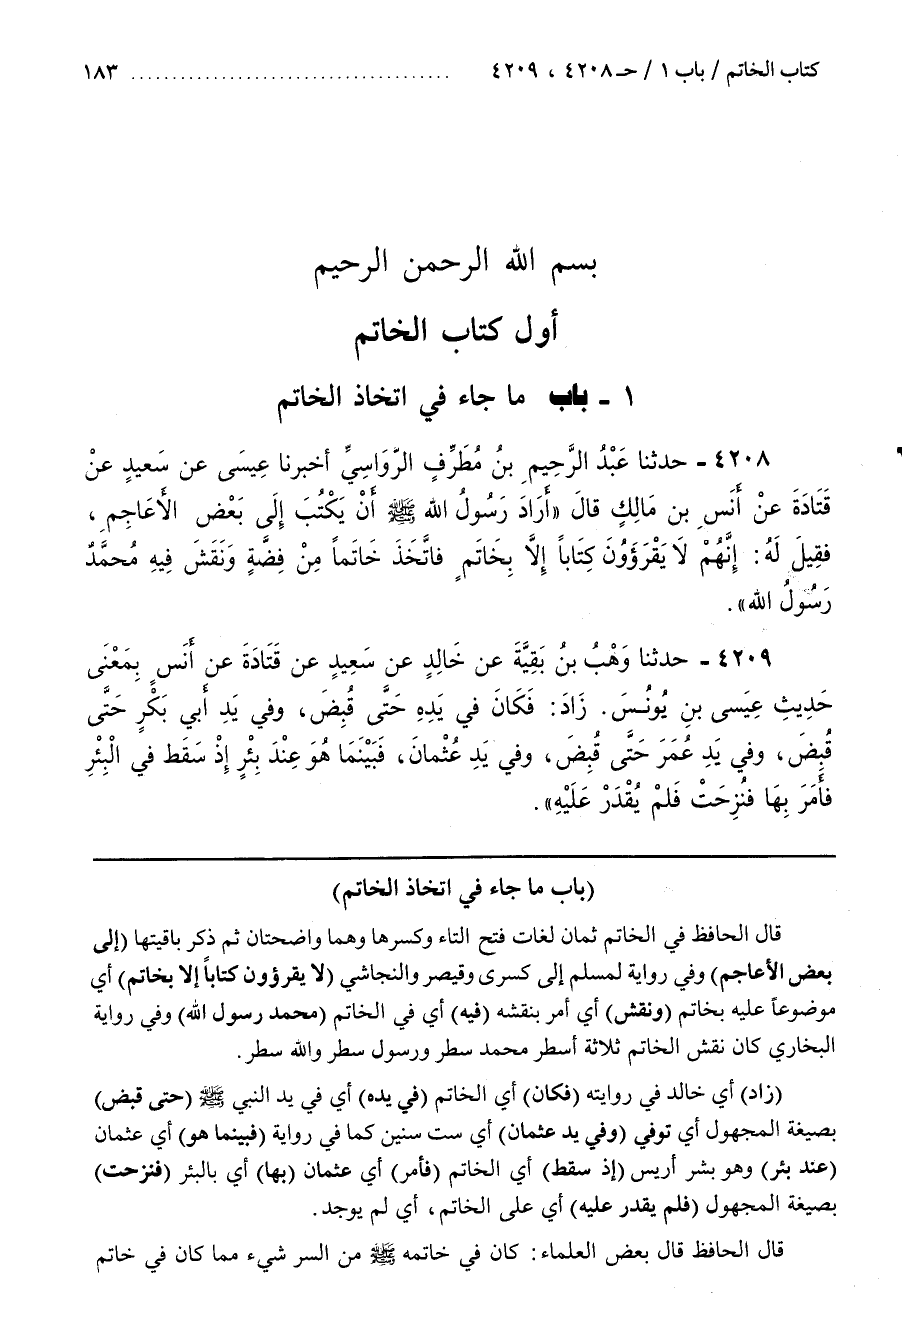 كتاب الخاتم / باب ١ / حـ ٤٢٠٨ ، ٤٢٠٩ .................................... ١٨٣
بسم الله الرحمن الرحيم
أول كتاب الخاتم
١ - باب ما جاء في اتخاذ الخاتم
٤٢٠٨ - حدثنا عَبْدُ الرَّحِيمِ بنُ مُطَرِّفٍ الرَّوَاسِيِّ أخبرنا عِيسَى عن سَعيدٍ عنْ
قَتَادَةَ عنْ أَنَسِ بن مَالِكٍ قالَ «أَرَادَ رَسُولُ الله ﷺ أَنْ يَكْتُبَ إِلَى بَعْض الأَعاجِمِ ،
فقِيلَ لَهُ: إِنَّهُمْ لَا يَقْرَؤُونَ كِتَاباً إلَّا بِخَاتَمٍ فاتَّخَذَ خَاتَماً مِنْ فِضَّةٍ وَنَقَشَ فِيهِ مُحمَّدٌ
رَسُولُ الله».
٤٢٠٩ - حدثنا وَهْبُ بنُ بَقِيَّةَ عن خَالِدٍ عن سَعِيدٍ عن قَتَادَةَ عن أَنَسٍ بِمَعْنَى
حَدِيثِ عِيَسى بنِ يُونُسَ. زَادَ: فَكَانَ في يَدِهِ حَتَّى قُبِضَ، وفي يَدِ أبي بَكْرٍ حَتَّى
قُبِضَ، وفي يَدِ عُمَرَ حَتَّى قُبِضَ، وفي يَدِ عُثْمانَ، فَبَيْنَمَا هُوَ عِنْدَ بِئْرٍ إِذْ سَقَط في الْبِئْرِ
فأَمَرَ بِهَا فَنُزِحَتْ فَلمْ يُقْدَرْ عَلَيْهِ».
(باب ما جاء في اتخاذ الخاتم)
قال الحافظ في الخاتم ثمان لغات فتح التاء وكسرها وهما واضحتان ثم ذكر باقيتها (إلى
بعض الأعاجم) وفي رواية لمسلم إلى كسرى وقيصر والنجاشي (لا يقرؤون كتاباً إلا بخاتم) أي
موضوعاً عليه بخاتم (ونقش) أي أمر بنقشه (فيه) أي في الخاتم (محمد رسول الله) وفي رواية
البخاري كان نقش الخاتم ثلاثة أسطر محمد سطر ورسول سطر والله سطر.
(زاد) أي خالد في روايته (فكان) أي الخاتم (في يده) أي في يد النبي ﷺ (حتى قبض)
بصيغة المجهول أي توفي (وفي يد عثمان) أي ست سنين كما في رواية (فبينما هو) أي عثمان
(عند بئر) وهو بشر أريس (إذ سقط) أي الخاتم (فأمر) أي عثمان (بها) أي بالبئر (فنزحت)
بصيغة المجهول (فلم يقدر عليه) أي على الخاتم، أي لم يوجد.
قال الحافظ قال بعض العلماء: كان في خاتمه ﷺ من السر شيء مما كان في خاتم